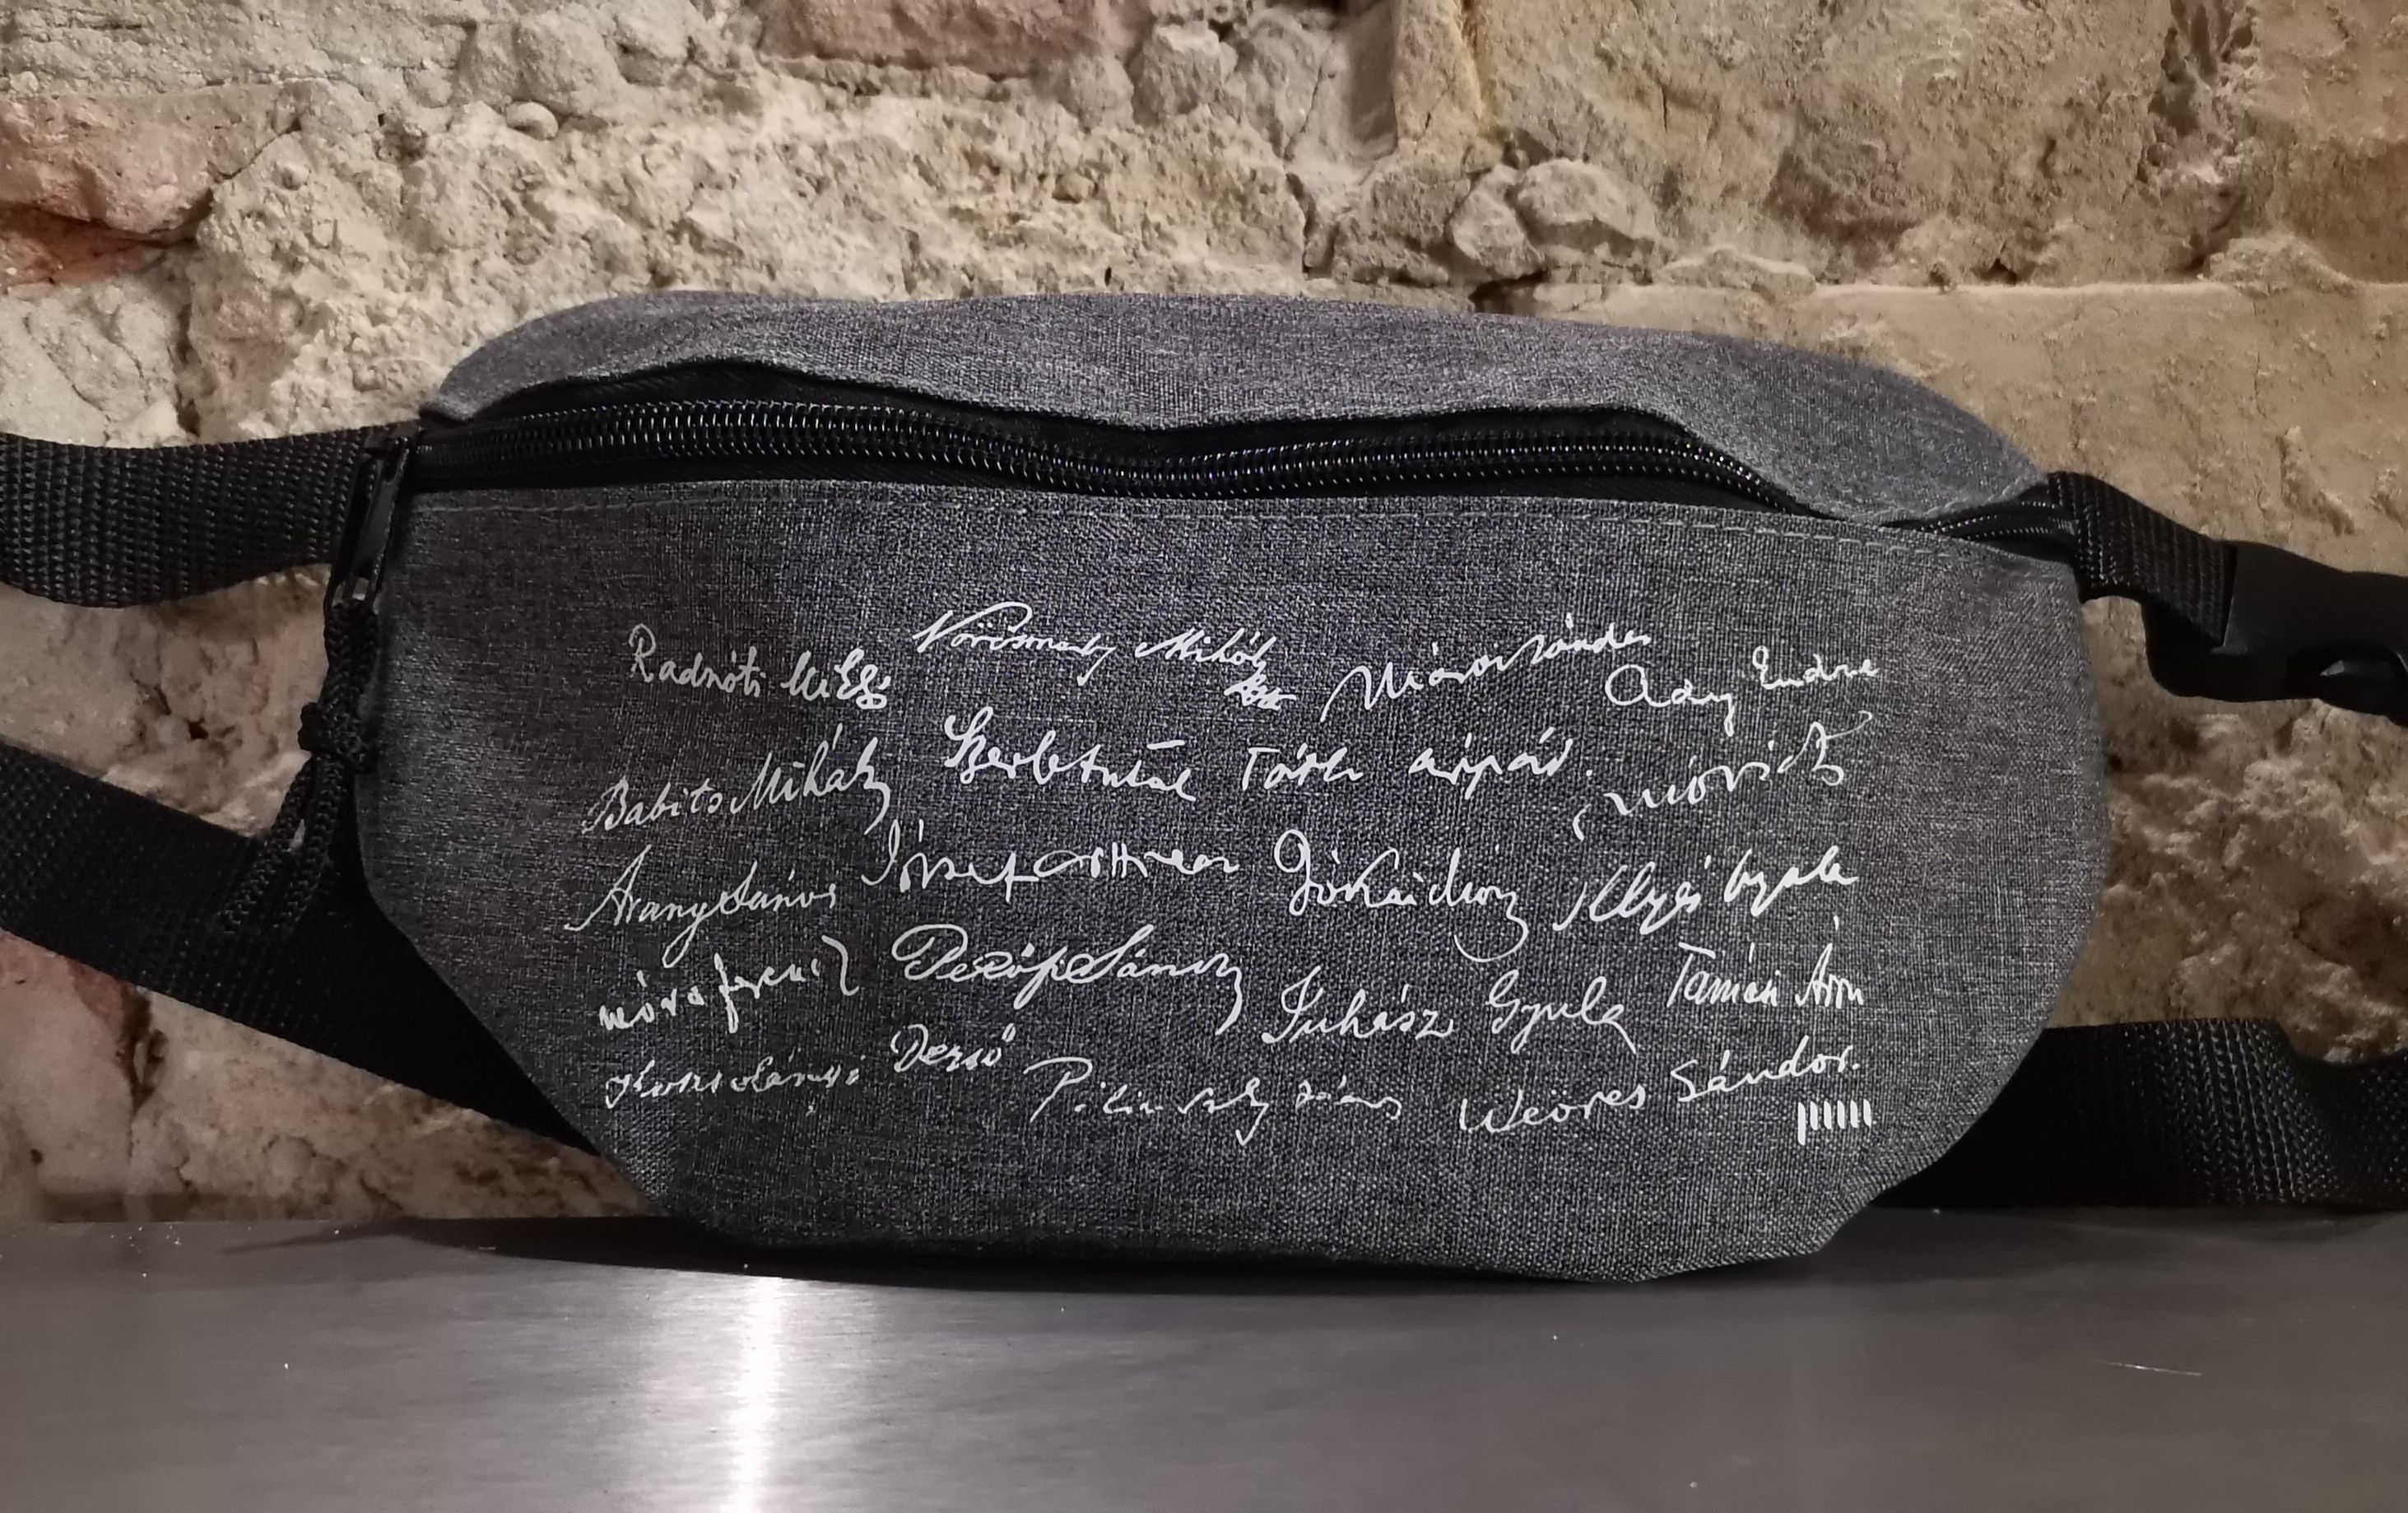 Radnóti Mikl Vörösmarty Mihály Márai Sándor Ady Endre
Babits Mihály Szeretettel Tóth Árpád. Móricz
Arany János József Attila Jókai Mór Illyés Gyula
Móra Ferenc Petőfi Sándor Juhász Gyula Tamási Áron
Kosztolányi Dezső Pilinszky János Weöres Sándor.